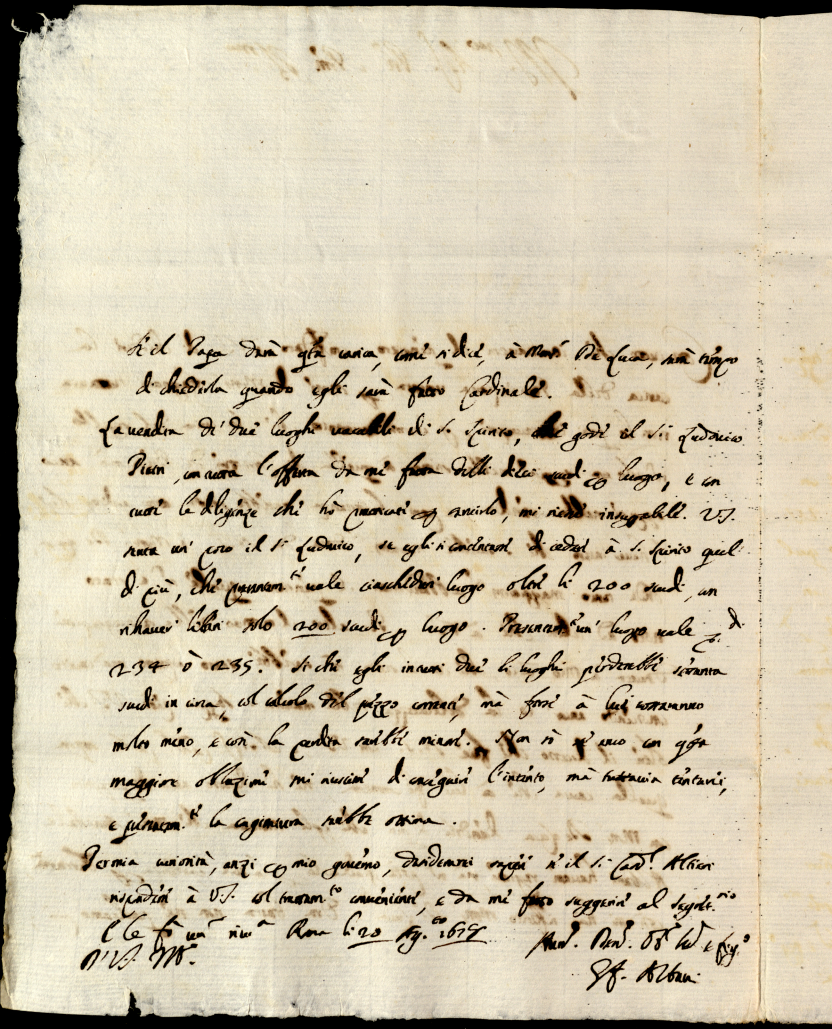 Se il Papa darà qta carica, come si dice, à Monsr De Luca, sarà tempo
di chiederla quando egli sarà fatto Cardinale.
La vendita de' due luoghi vacabili di S. Spirito, che gode il Sr Ludovico
con tutta l'offerta da me fatta delli dieci scudi luogo, e con
tutte le diligenze che hò praticate, mi riesce insuperabile. VS.
senta un poco il Sr Ludovico, se egli si contentasse di cedere à S. Spirito quel
di più, che presentemte vale ciaschedun luogo oltre li 200 scudi, con
rihaver liberi solo 200 scudi luogo. Presentemte un luogo vale
234 ò 235. Si che egli in tutti due li luoghi perderebbe settanta
scudi in circa, col calcolo del prezzo corrente, mà forse à lui costaranno
molto meno, e così la perdita sarebbe minore. Non sò se anco con qta
maggiore oblazione mi riuscirà di conseguire l'intento, mà tuttavia tentarei,
e presentemte la congiuntura sarebbe ottima.
Per mia curiosità, anzi mio governo, desiderarei sapere se il Sr Cardl Altieri
rispondesse à VS. col trattamto conveniente, e da me fatto suggerire al Segretrio
E le Roma li 20
D. VS.
Albani